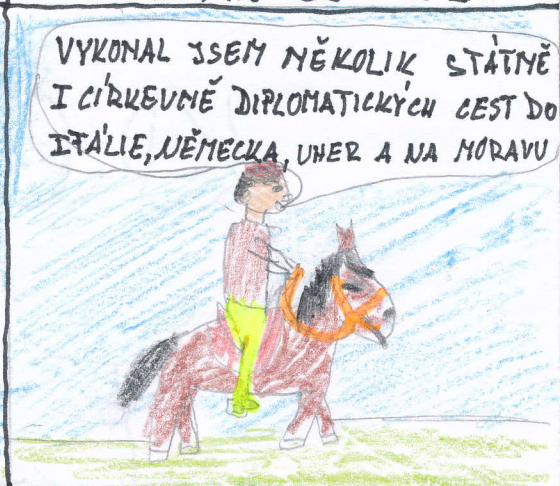 VYKONAL JSEM NĚKOLIK STÁTNĚ
I CÍRKEVNĚ DIPLOMATICKÝCH CEST DO
ITÁLIE, NĚMECKA, UHER A NA MORAVU